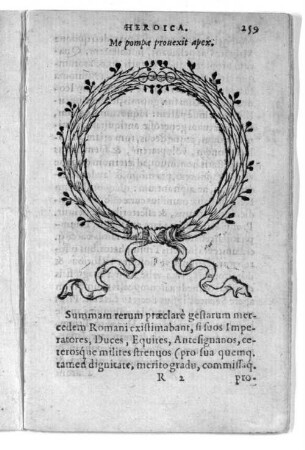 HEROICA. 259
Me pompæ prouexit apex.
Summam rerum præclarè gestarum mer-
cedem Romani existimabant, si suos Impe-
ratores, Duces, Equites, Antesignanos, ce-
terosque milites strenuos (pro sua quemq.
tamen dignitate, merito gradu, commissaq.
R 2 pro-